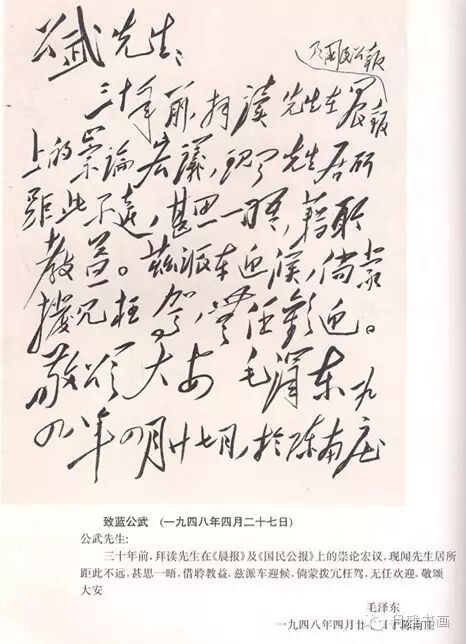 公武先生：
及国民公报
三十年前，拜读先生在晨报
上的崇论宏议，现闻先生居所
距此不远，甚思一晤，藉聆
教益。兹派车迎候，倘蒙
拨冗枉驾，无任欢迎。
敬颂大安 毛泽东 一九
四八年四月廿七日，于陈南庄
致蓝公武 (一九四八年四月二十七日)
公武先生:
三十年前，拜读先生在《晨报》及《国民公报》上的崇论宏议，现闻先生居所
距此不远，甚思一晤，借聆教益。兹派车迎候，倘蒙拨冗枉驾，无任欢迎。敬颂
大安
毛泽东
一九四八年四月廿 于陈南庄
雅书画